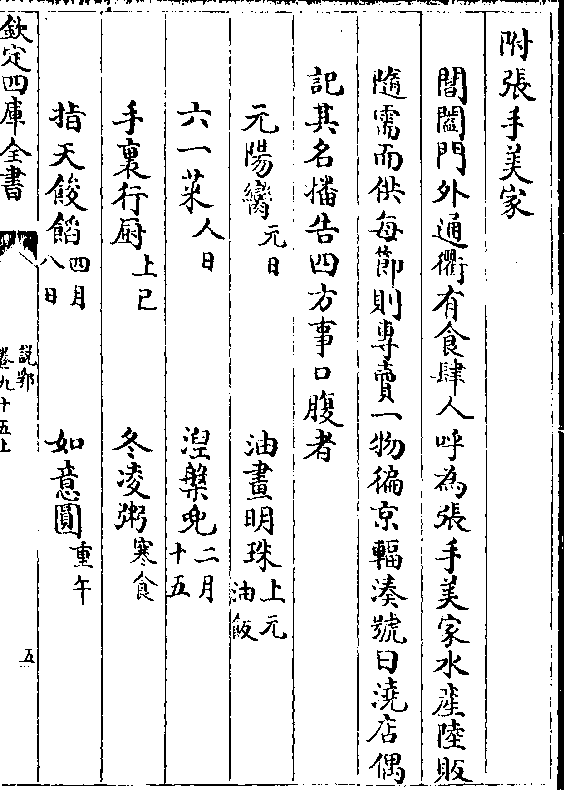 附張手美家
閶闔門外通衢有食肆人呼為張手美家水產陸販
隨需而供每節則専賣一物徧京輻湊號曰澆店偶
記其名播告四方事口腹者
元陽臠元日 油畫明珠上元油飯
六一菜人日 湼槃兜二月十五
手裏行厨上巳 冬凌粥寒食
指天餕餡四月八日 如意圓重午
欽定四庫全書
說郛
卷九十五上
五